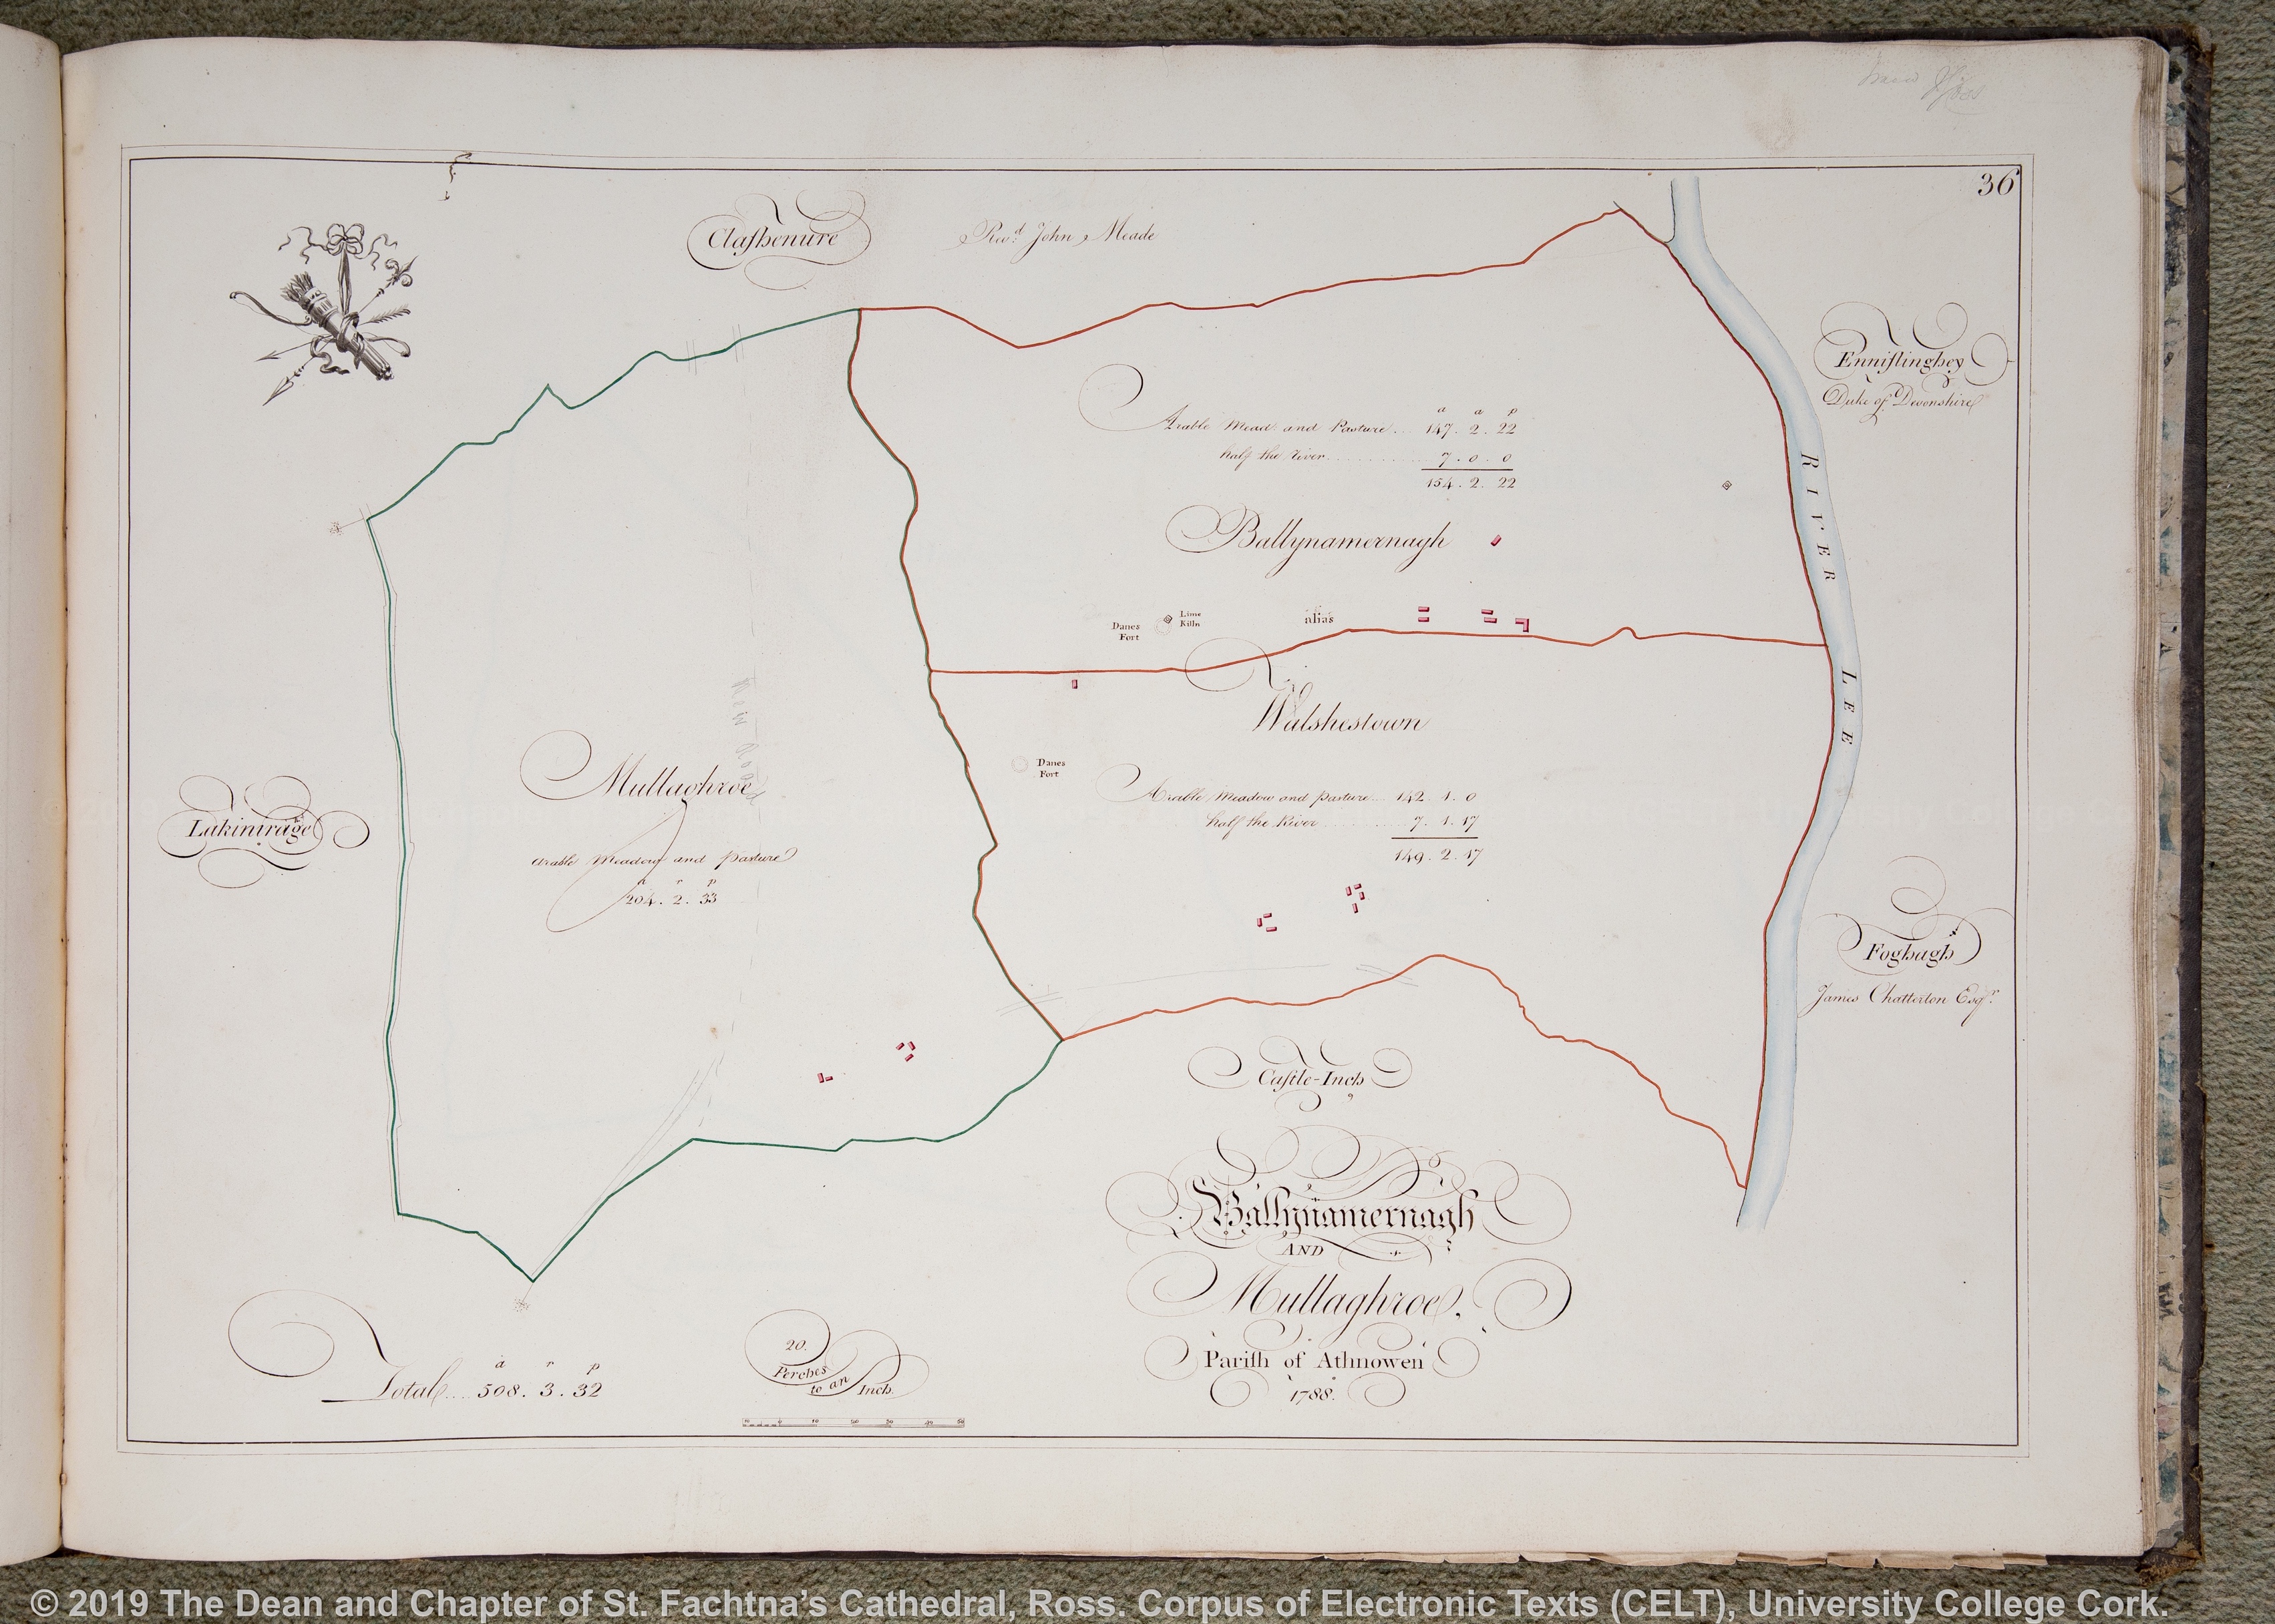 36
Claſhenure
Revd. John Meade
Enniſlinghey
Duke of Devonshire
a a p
Arable Mead. and Pasture.... 147. 2. 22
half the River.............. 7. 0. 0
154. 2. 22
RIVER LEE
Ballynamernagh
Danes Fort
Lime Kiln
alias
Walshestown
New Road
Danes Fort
Mullaghroe
Arable Meadow and Pasture.... 142. 1. 0
half the River............ 7. 1. 17
149. 2. 17
Lakintrage
arable Meadow and Pasture
a r p
204. 2. 33
Foghagh
James Chatterton Esqr.
Caſtle-Inch
Ballynamernagh
AND
Mullaghroe.
Pariſh of Athnowen
1788.
a r p
Total.... 508. 3. 32
20.
Perches
to an Inch.
10 0 10 20 30 40 50
© 2019 The Dean and Chapter of St. Fachtna’s Cathedral, Ross. Corpus of Electronic Texts (CELT), University College Cork.